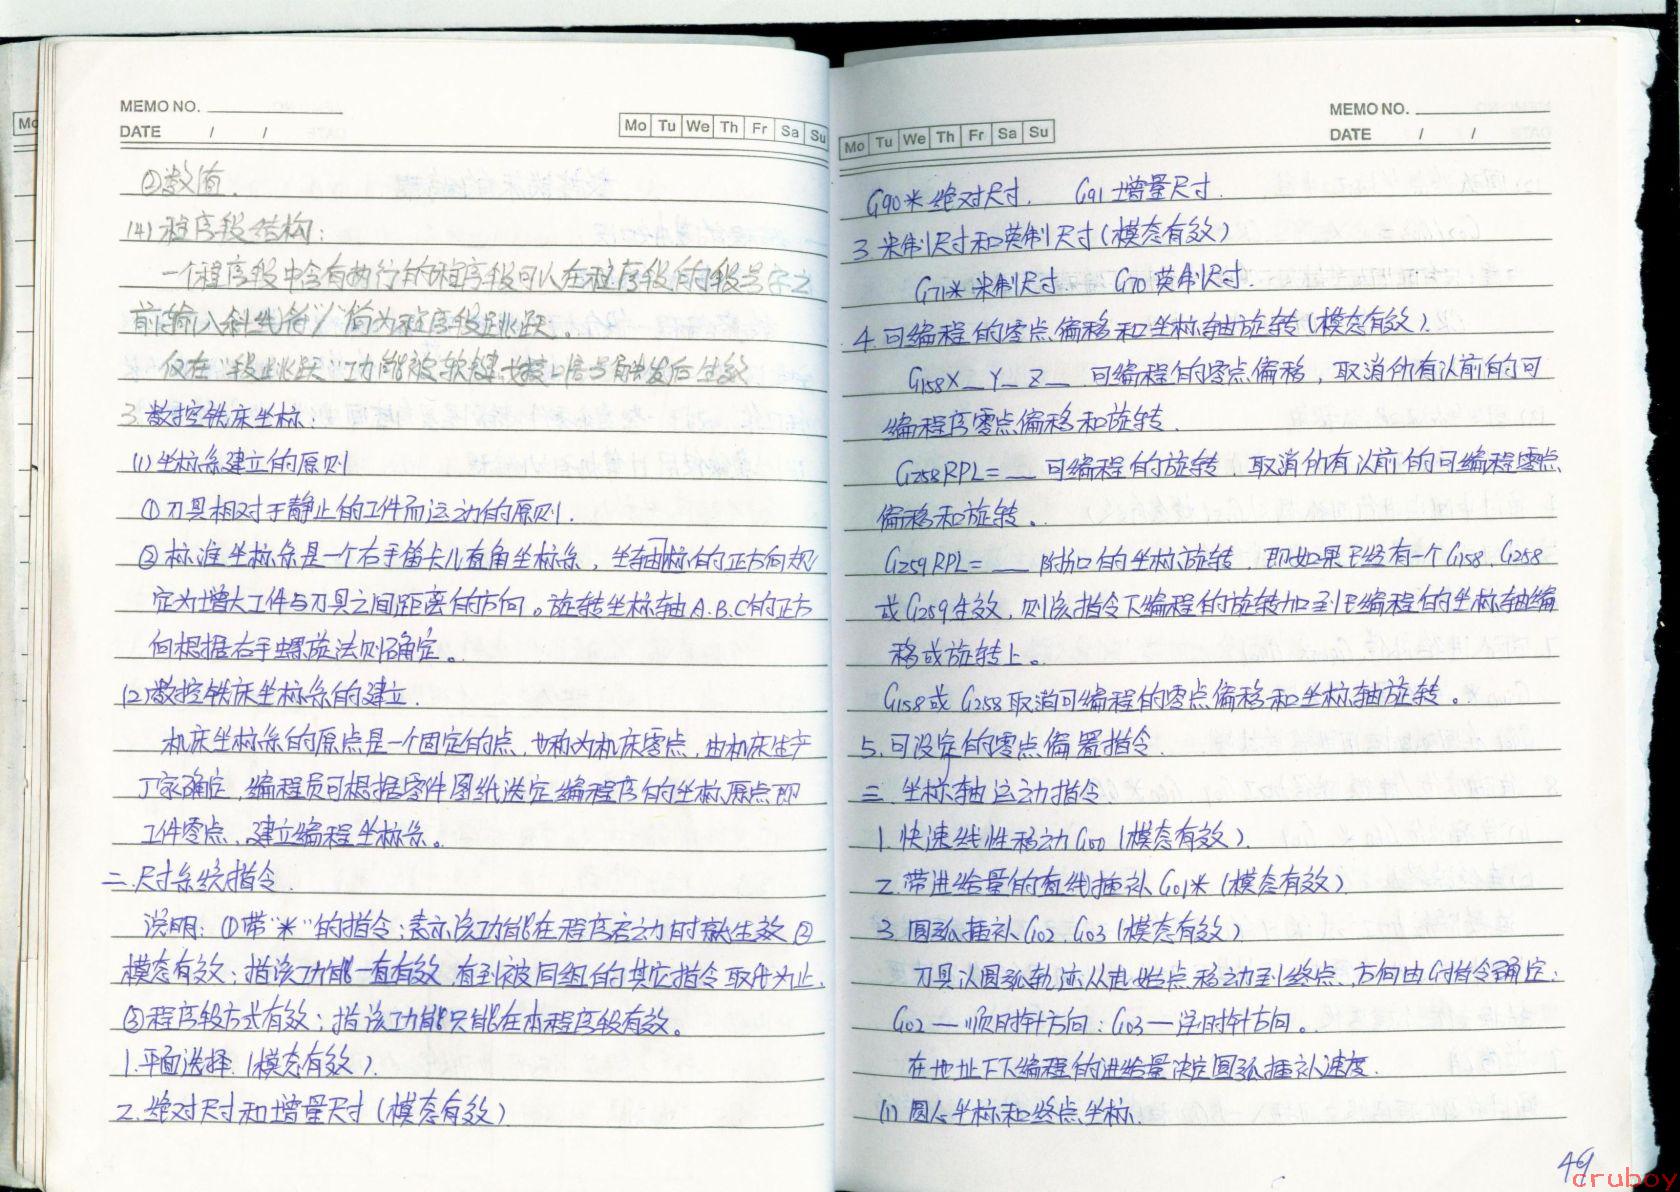 MEMO NO.
DATE / /
Mo Tu We Th Fr Sa Su
②数值.
(4)程序段结构:
一个程序段中含有执行的程序段可以在程序段的段号字之
前输入斜线符"/"简为程序段跳跃。
仅在"段跳跃"功能被软键或接口信号触发后生效
3.数控铣床坐标:
(1)坐标系建立的原则
①刀具相对于静止的工件而运动的原则.
②标准坐标系是一个右手笛卡儿直角坐标系，坐轴标的正方向规
定为增大工件与刀具之间距离的方向。旋转坐标轴A.B.C的正方
向根据右手螺旋法则确定。
(2)数控铣床坐标系的建立.
机床坐标系的原点是一个固定的点,也称为机床零点,由机床生产
厂家确定,编程员可根据零件图纸选定编程序的坐标原点即
工件零点,建立编程坐标系。
二.尺寸系统指令.
说明:①带"米"的指令:表示该功能在程序启动时就生效②
模态有效:指该功能一直有效,直到被同组的其它指令取代为止.
③程序段方式有效:指该功能只能在本程序段有效。
1.平面选择.(模态有效).
2.绝对尺寸和增量尺寸(模态有效)
MEMO NO.
DATE / /
Mo Tu We Th Fr Sa Su
G90米绝对尺寸. G91增量尺寸.
3.米制尺寸和英制尺寸(模态有效)
G71米 米制尺寸. G70英制尺寸.
4.可编程的零点偏移和坐标轴旋转(模态有效).
G158X_Y_Z_.可编程的零点偏移,取消所有以前的可
编程序零点偏移和旋转.
G258RPL=__可编程的旋转,取消所有以前的可编程零点
偏移和旋转。
G259RPL=__附加的坐标旋转,即如果已经有一个G158.G258
或G259生效,则该指令下编程的旋转加到已编程的坐标轴编
移或旋转上。
G158或G258取消可编程的零点偏移和坐标轴旋转。
5.可设定的零点偏置指令.
三.坐标轴运动指令
1.快速线性移动G00(模态有效).
2.带进给量的直线插补G01米(模态有效)
3.圆弧插补G02.G03(模态有效)
刀具以圆弧轨迹从起始点移动到终点,方向由G指令确定:
G02—顺时针方向:G03—逆时针方向。
在地址F下编程的进给量决定圆弧插补速度.
(1)圆心坐标和终点坐标.
49
cruboy